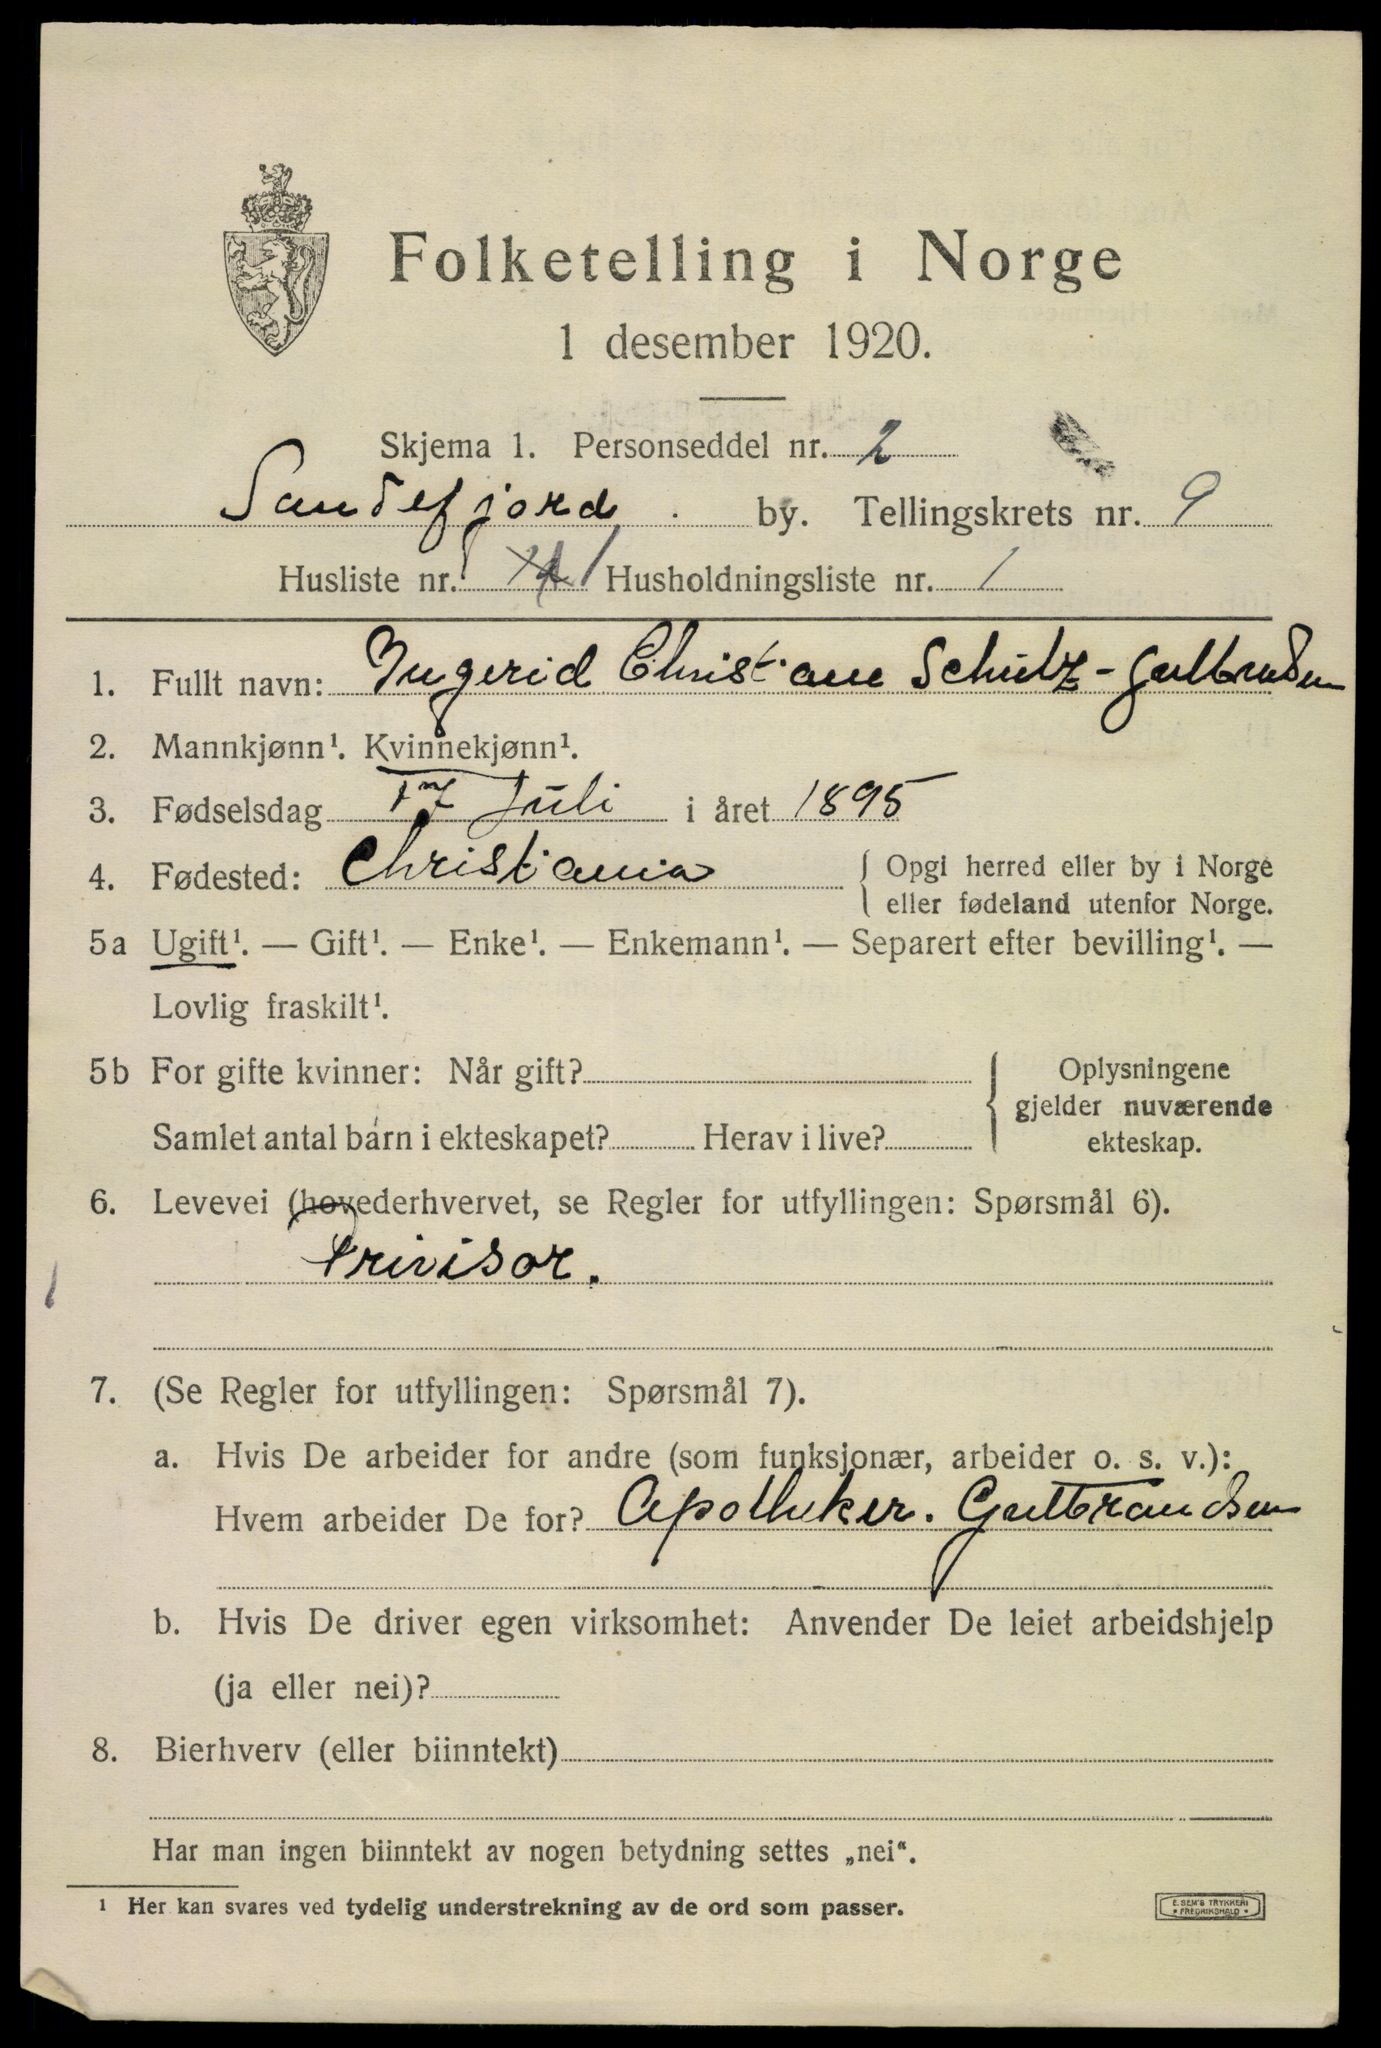 Folketelling i Norge
1 desember 1920.
Skjema 1. Personseddel nr. 2
Sandefjord by. Tellingskrets nr. 9
Husliste nr. 1 Husholdningsliste nr. 1
1. Fullt navn: Ingerid Christiane Schultz-Gulbrandsen
2. Mannkjønn¹. Kvinnekjønn¹.
3. Fødselsdag 17 Juli i året 1895
4. Fødested: Christiania { Opgi herred eller by i Norge
eller fødeland utenfor Norge.
5a Ugift¹. — Gift¹. — Enke¹. — Enkemann¹. — Separert efter bevilling¹. —
Lovlig fraskilt¹.
5b For gifte kvinner: Når gift? { Oplysningene
gjelder nuværende
Samlet antal barn i ekteskapet? Herav i live? ekteskap.
6. Levevei (hovederhvervet, se Regler for utfyllingen: Spørsmål 6).
Privisor.
7. (Se Regler for utfyllingen: Spørsmål 7).
a. Hvis De arbeider for andre (som funksjonær, arbeider o. s. v.):
Hvem arbeider De for? Apotheker. Gulbrandsen
b. Hvis De driver egen virksomhet: Anvender De leiet arbeidshjelp
(ja eller nei)?
8. Bierhverv (eller biinntekt)
Har man ingen biinntekt av nogen betydning settes „nei“.
¹ Her kan svares ved tydelig understrekning av de ord som passer.
E. SEM'S TRYKKERI
• FREDRIKSHALD •